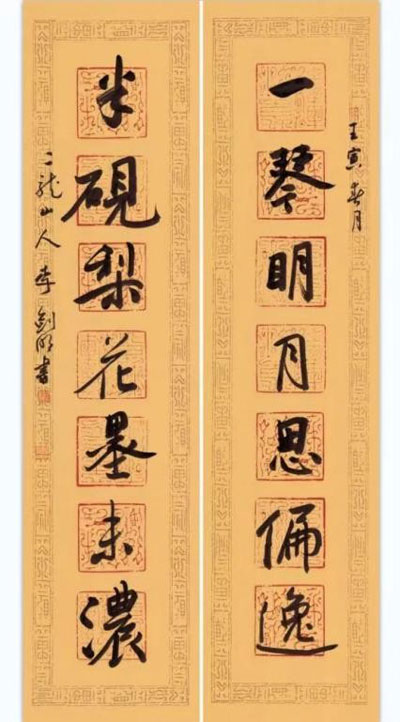 壬寅春月
一琴明月思偏逸
半砚梨花墨未濃
二龍山人李劍明書